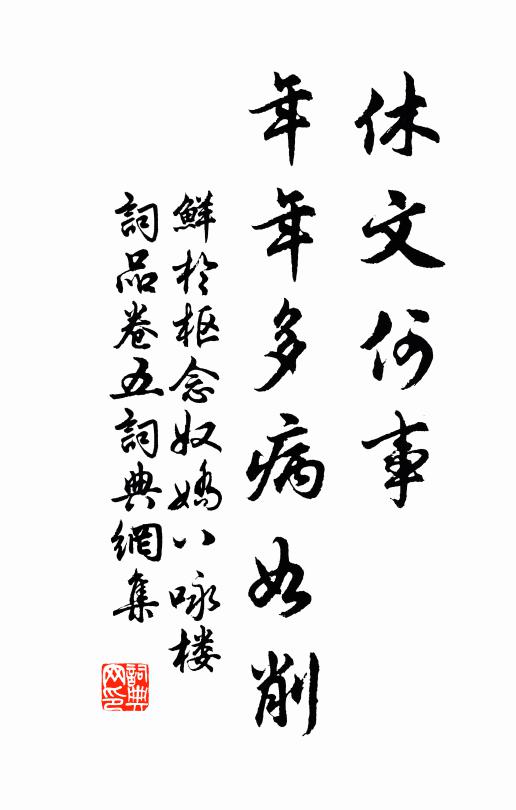 休文何事
年年多病如削
鮮於枢念奴嬌八咏楼
詞品卷五詞典網集
詞典网印